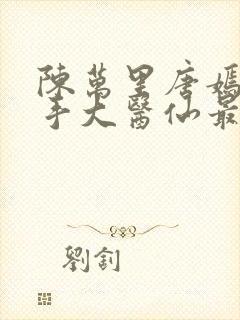 陳萬里唐嫣
手大醫仙最
劉釗